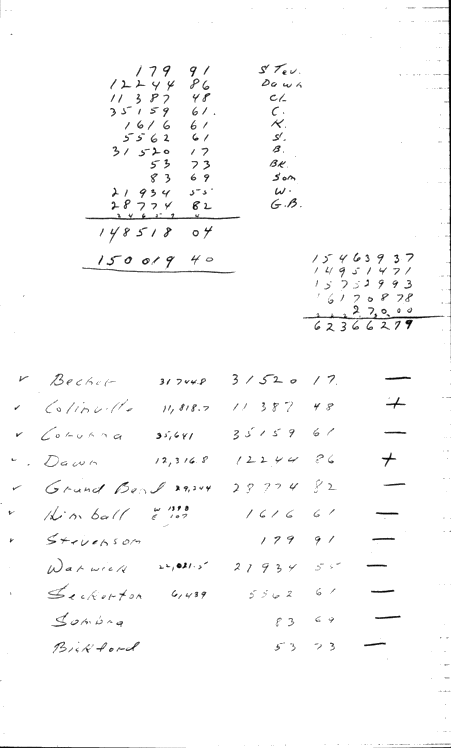 179 91 STev.
12244 86 Dawn
11387 48 CL.
35159 61. C.
1616 61 K.
5562 61 S.
31520 17 B.
53 73 BK.
83 69 Som
21934 55 W.
28774 82 G.B.
148518 04
150019 40
15463937
14951471
15752993
16170878
27,0,00
62366279
✓ Becher 31744.8 31520 17. —
✓ Colinville 11,818.7 11387 48 +
✓ Corunna 35,641 35159 61 —
✓. Dawn 12,316.8 12244 86 +
✓ Grand Bend 29,244 28774 82 —
✓ Kimball W 1398 E 107 1616 61 —
✓ Stevenson 179 91 —
Warwick 22,021.5 21934 55 —
Seckerton 6,439 5562 61 —
Sombra 83 69 —
Bickford 53 73 —